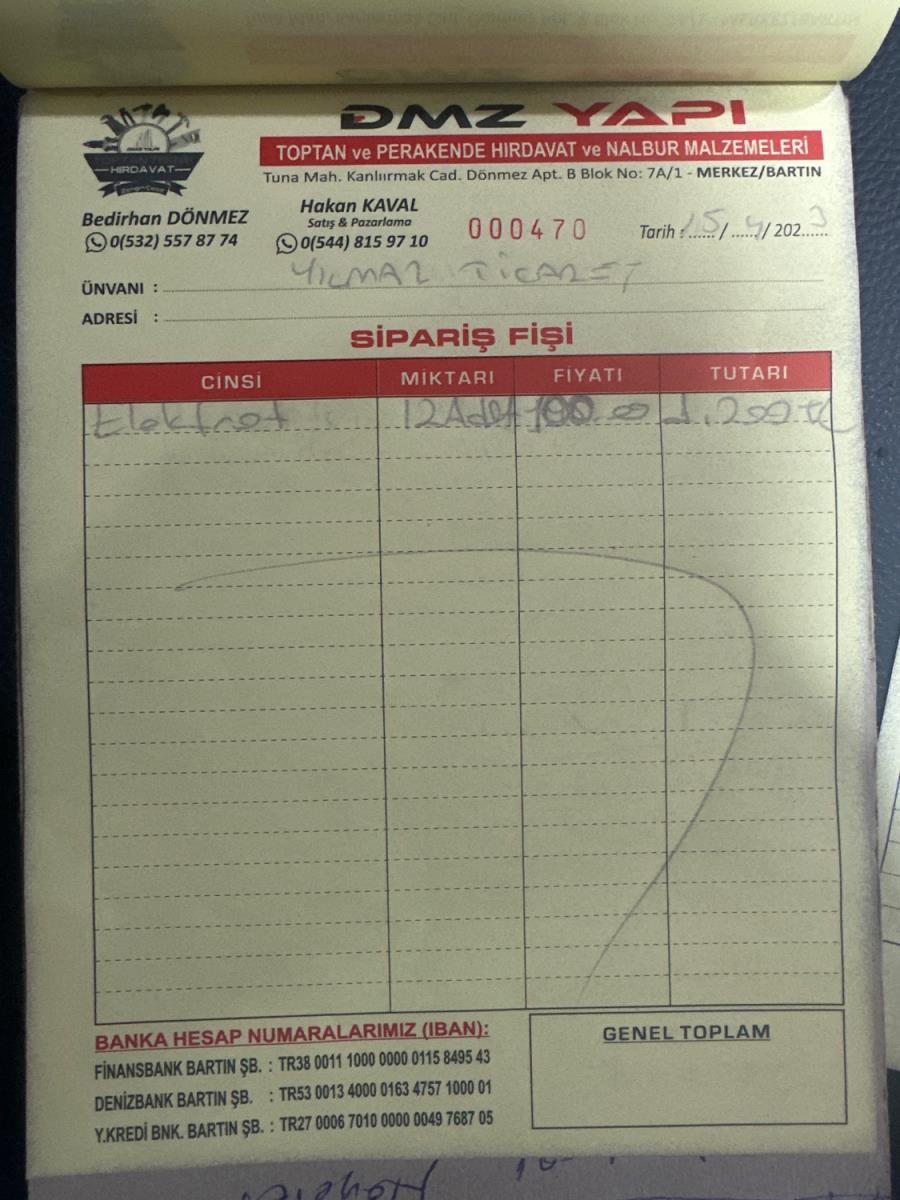 DMZ YAPI
TOPTAN ve PERAKENDE HIRDAVAT ve NALBUR MALZEMELERİ
Tuna Mah. Kanlıırmak Cad. Dönmez Apt. B Blok No: 7A/1 - MERKEZ/BARTIN
HIRDAVAT
Bedirhan DÖNMEZ
0(532) 557 87 74
Hakan KAVAL
Satış & Pazarlama
0(544) 815 97 10
000470
Tarih : 15 / 4 / 2023
ÜNVANI : YILMAZ TİCARET
ADRESİ :
SİPARİŞ FİŞİ
CİNSİ MİKTARI FİYATI TUTARI
Elektrot 12 Adet 100.00 1.200 TL
BANKA HESAP NUMARALARIMIZ (IBAN):
FİNANSBANK BARTIN ŞB. : TR38 0011 1000 0000 0115 8495 43
DENİZBANK BARTIN ŞB. : TR53 0013 4000 0163 4757 1000 01
Y.KREDİ BNK. BARTIN ŞB. : TR27 0006 7010 0000 0049 7687 05
GENEL TOPLAM